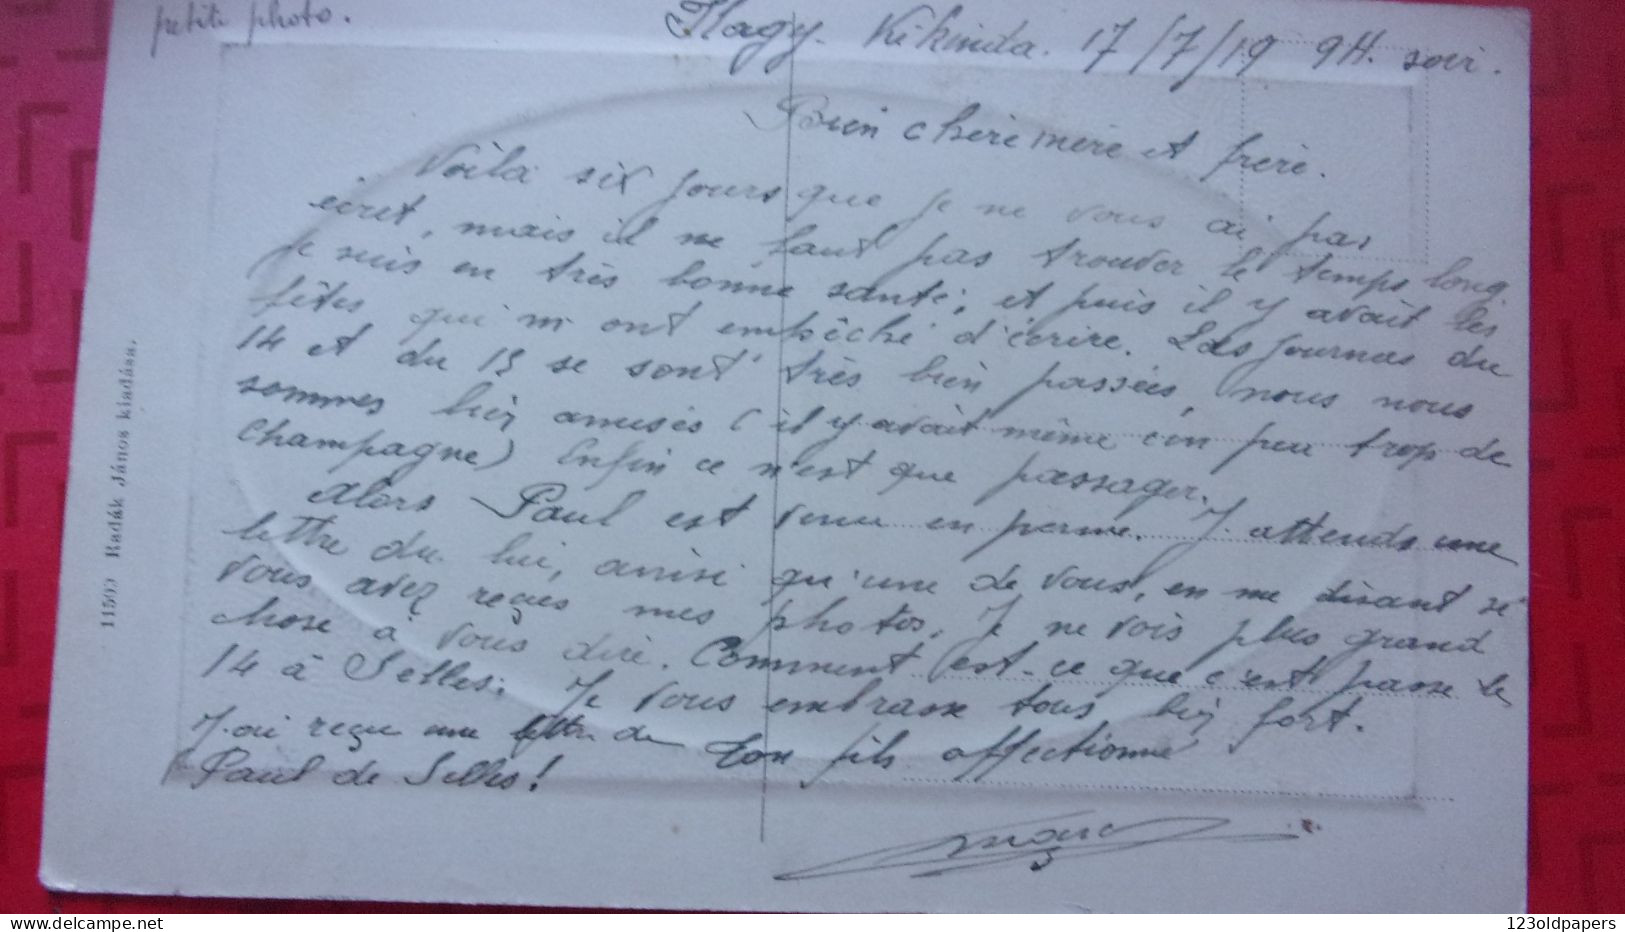 petite photo.
Nagy. Kikinda. 17/7/19 9H. soir.
Bien chère mère et frère.
Voilà six jours que je ne vous ai pas
écrit, mais il ne faut pas trouver le temps long
je suis en très bonne santé; et puis il y avait les
fêtes qui m ont empêché d'écrire. Les journas du
14 et du 15 se sont très bien passées, nous nous
sommes bien amusés (il y avait même un peu trop de
champagne) Enfin ce n'est que passager.
Alors Paul est venu en perme. J. attends une
lettre du lui, ainsi qu'une de vous, en me disant si
vous avez reçues mes photos. Je ne vois plus grand
chose à vous dire. Comment est-ce que c'est passe le
14 à Selles. Je vous embrasse tous bien fort.
J.ai reçu une lettre de
Paul de Selles!
Ton fils affectionné
Marc
11509 Radák János kiadása.
123oldpapers
delcampe.net